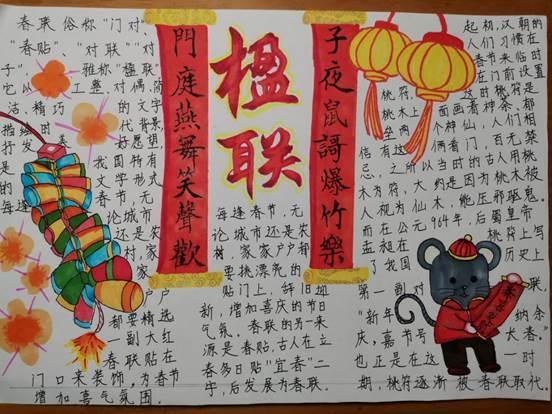 春联俗称"门对、
"春贴"、"对联""对
子",雅称"楹联"
它以工整、对偶、简
洁、精巧的文字
描绘时代背景,
抒发美好愿望,
是我国特有
的文学形式
每逢春节,无
论城市
还是农
村,家
家户户
都要精选
一副大红
春联贴在
门口来装饰,为春节
增加喜气氛围.
門庭燕舞笑聲歡
楹联
子夜鼠謌爆竹樂
每逢春节,无
论城市还是农
村,家家户户都
要挑漂亮的
贴门上,辞旧迎
新,增加喜庆的节日
气氛。春联的另一来
源是春贴.古人在立
春多日贴"宜春"二
字,后发展为春联.
起初,汉朝的
人们习惯在
春节来临时
在门前设置
桃符.这时桃符是
桃木上面画着神荼、郁
垒两个神仙,人们相
信有这俩看门,百无禁
忌.之所以当时的古人用桃
木为符,大约是因为桃木被
人视为仙木,能压邪驱鬼.
而在公元964年,后蜀皇帝
孟昶在桃符上写
了我国历史上
第一副对联,
"新年纳余
庆,嘉节号长春。"
也正是在这一时
期,桃符逐渐被春联取代.